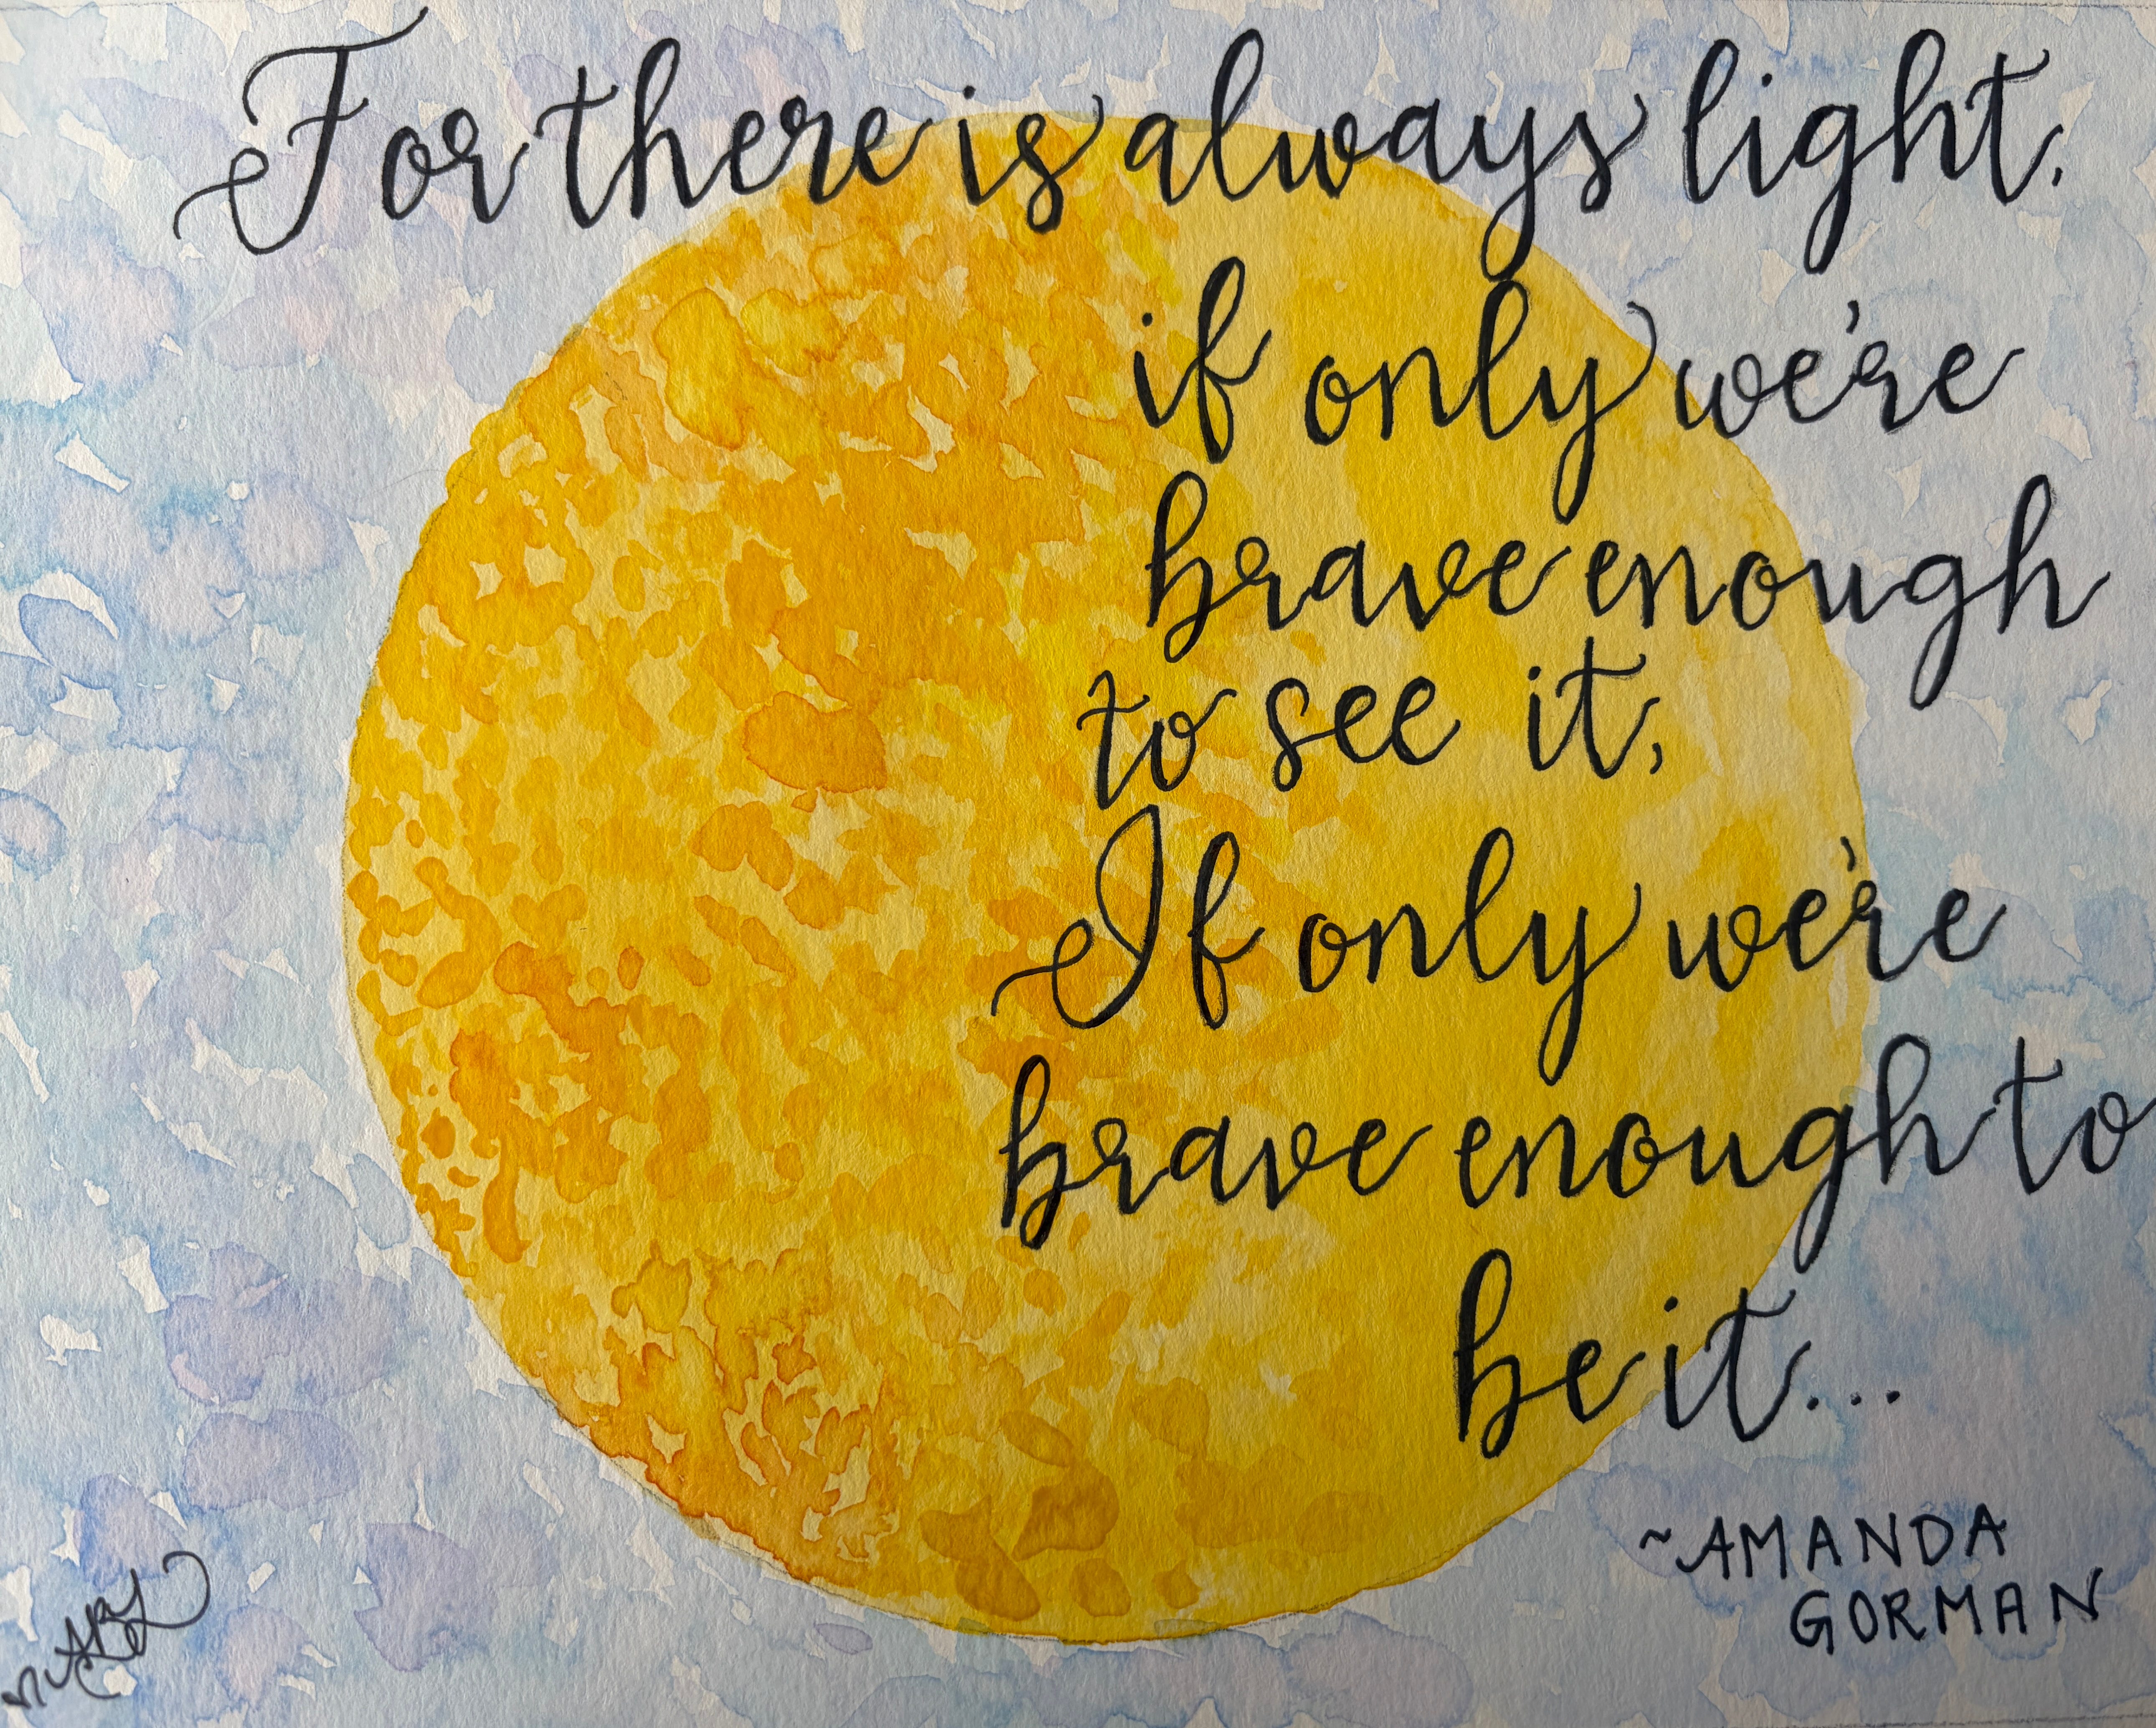 For there is always light,
if only we're
brave enough
to see it,
If only we're
brave enough to
be it...
~AMANDA
GORMAN